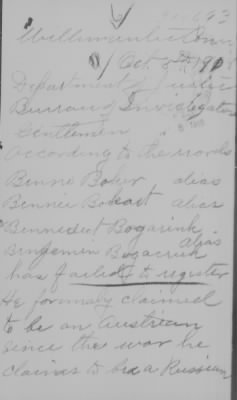 Willimantic Conn
Oct. 5th 191
Department of Justice
Bureau of Investigation
Gentlemen
According to the records
Benne alias
Bennie Bokart alias
Bennedict Bogarink
alias
Benjamin Bozacruk
has failed to register
He formaly claimed
to be an Austrian
Since the war he
claims to be a Russian